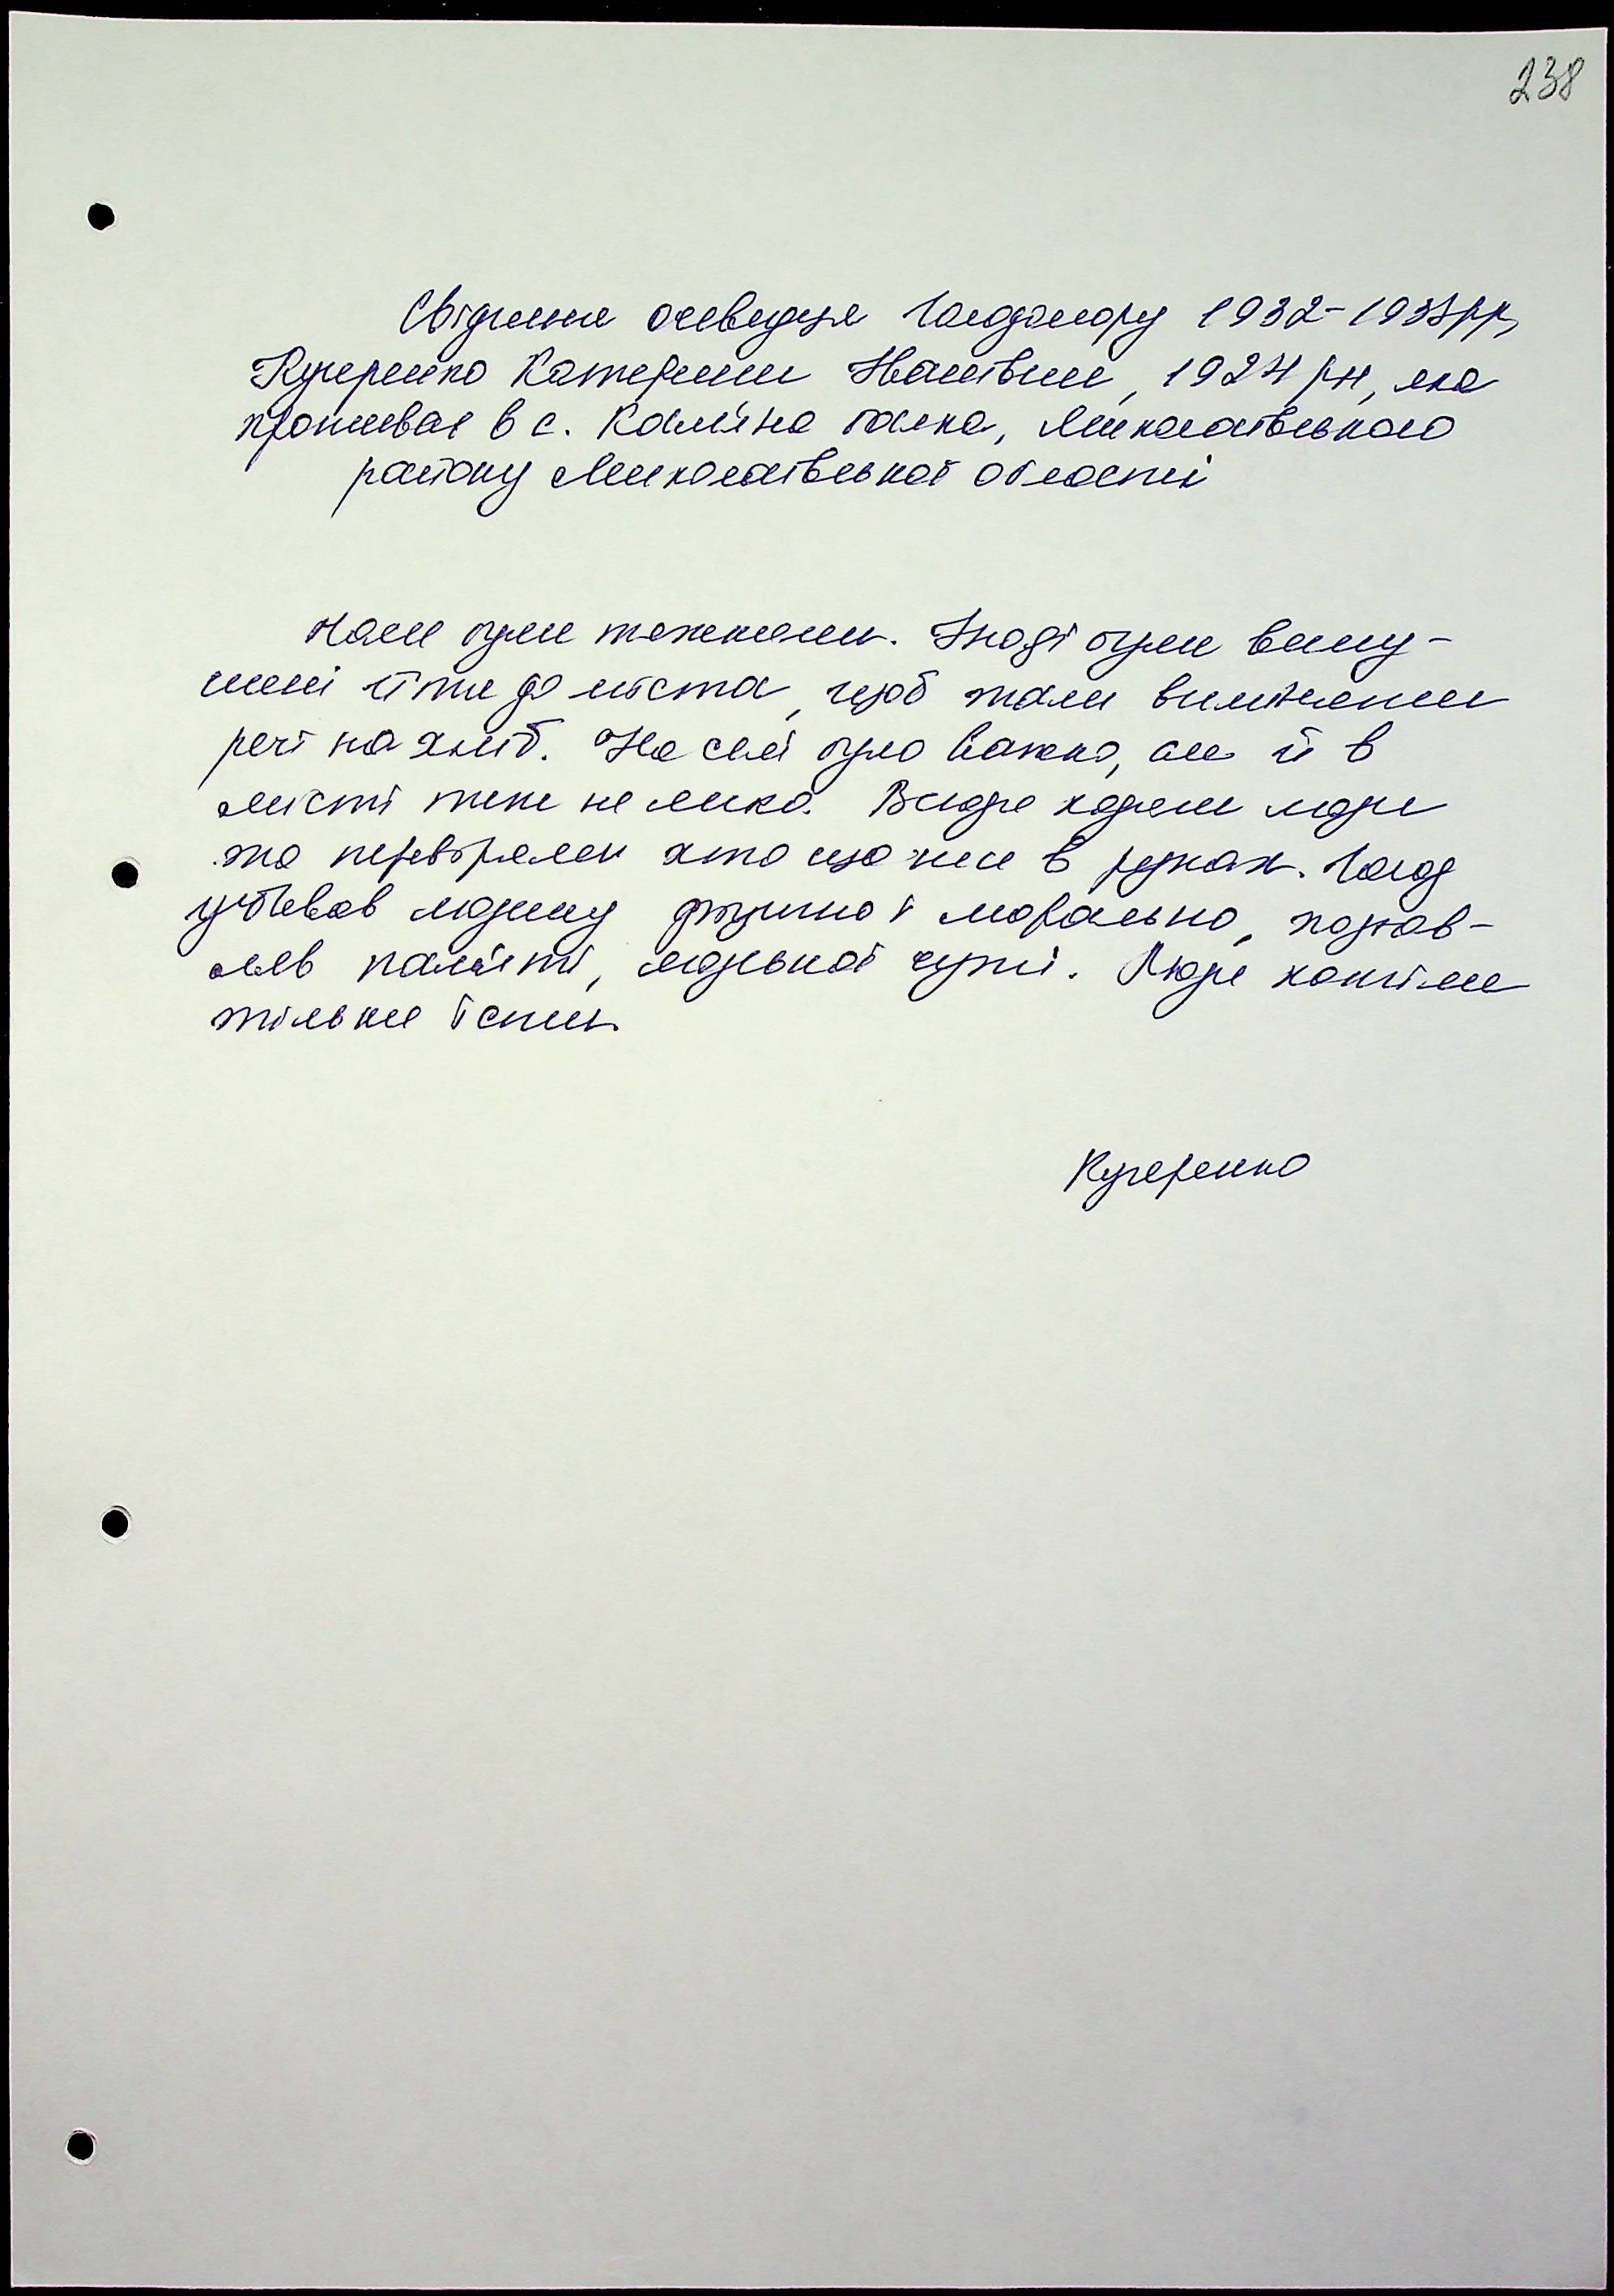 238
Свідчення очевидця Голодомору 1932-1933рр,
Кучеренко Катерини Іванівни, 1924 рн, яка
проживає в с. Кам'яна балка, Миколаївського
району Миколаївської області
Часи були тяжкими. Іноді були виму-
шені йти до міста, щоб там виміняти
речі на хліб. На селі було важко, але й в
місті теж не легко. Всюди ходили люди
та перевіряли хто що несе в руках. Голод
убивав людину фізично і морально, позбав-
ляв пам'яті, людської суті. Люди хотіли
тільки їсти.
Кучеренко